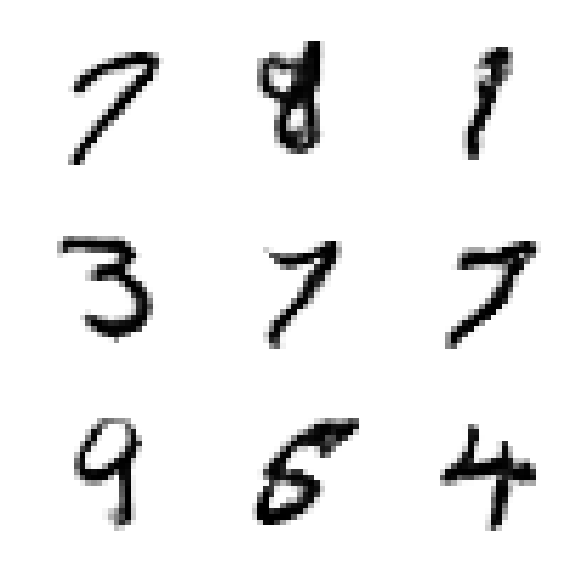 7 8
3 7 7
9 5 4